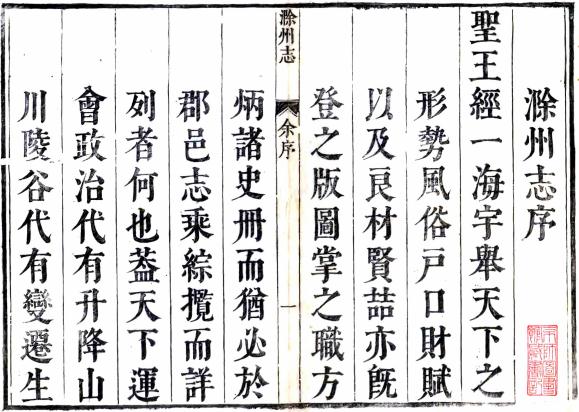 滁州志序
聖王經一海宇舉天下之
形勢風俗戸口財賦
以及良材賢喆亦旣
登之版圖掌之職方
滁州志
余序
一
炳諸史冊而猶必於
郡邑志乘綜攬而詳
列者何也葢天下運
會政治代有升降山
川陵谷代有變遷生